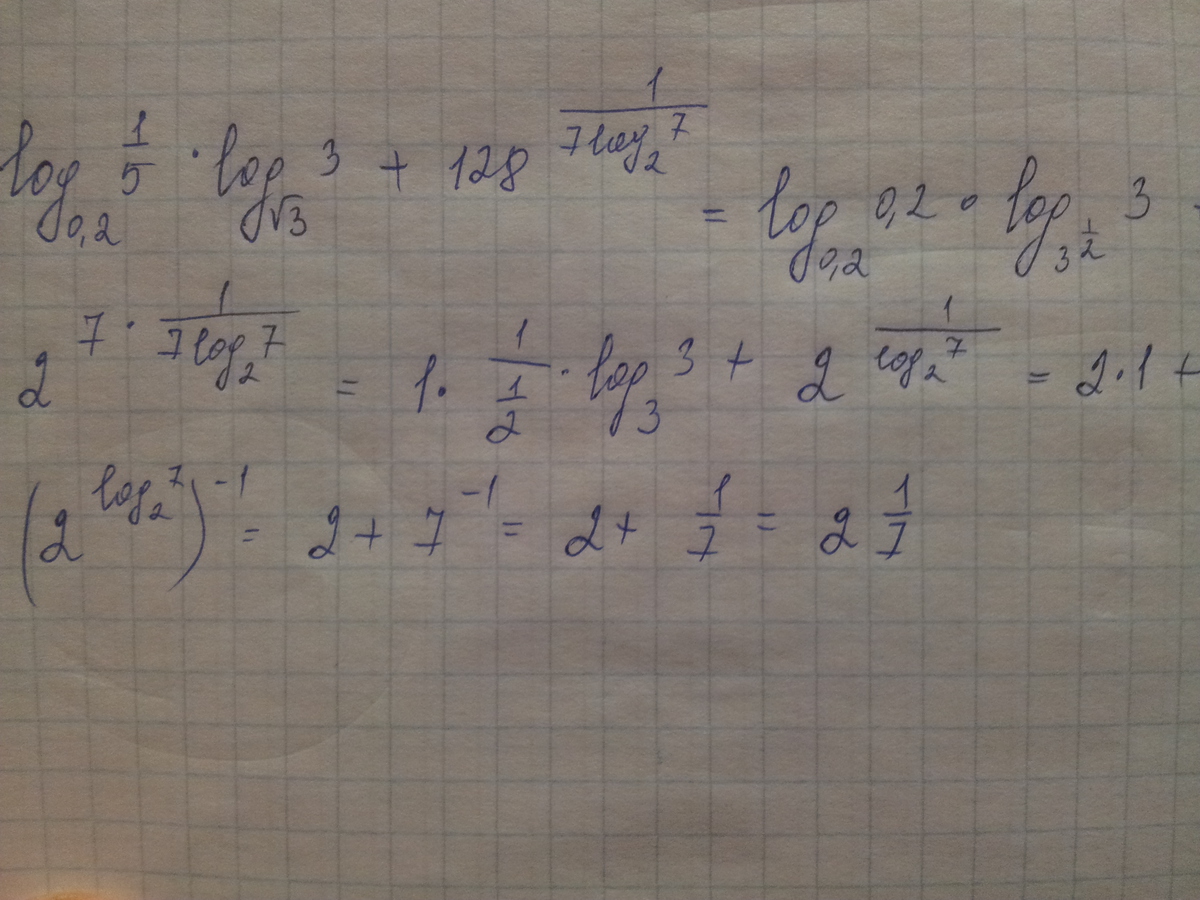 log_{0,2} \frac{1}{5} · log_{√3} 3 + 128^{\frac{1}{7log_2 7}} = log_{0,2} 0,2 · log_{3^{\frac{1}{2}}} 3 +
2^{7 · \frac{1}{7log_2 7}} = 1 · \frac{1}{\frac{1}{2}} · log_3 3 + 2^{\frac{1}{log_2 7}} = 2·1 +
(2^{log_2 7})^{-1} = 2 + 7^{-1} = 2 + \frac{1}{7} = 2\frac{1}{7}